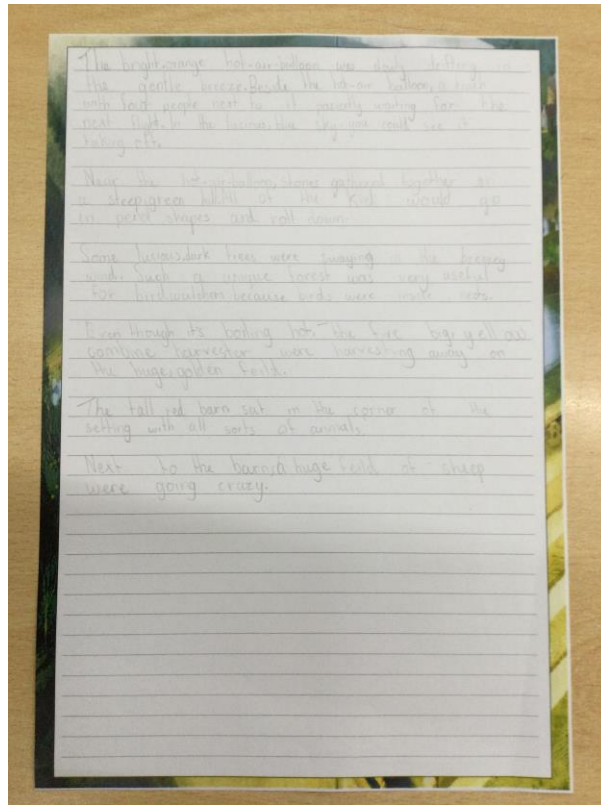 The bright,orange hot-air-balloon was slowly drifting in
the gentle breeze.Beside the hot-air balloon,a man
with four people next to it patiently waiting for the
next flight.In the luscious,blue sky,you could see it
taking off.
Near the hot-air-balloon, stones gathered together on
a steep,green hill. All of the kids would go
in pencil shapes and roll down.
Some luscious,dark trees were swaying in the breezey
wind. Such a unique forest was very useful
for birdwatchers because birds were inside nests.
Even though its boiling hot, the five big,yellow
combine harvester were harvesting away on
the huge,golden feild.
The tall red barn sat in the corner of the
setting with all sorts of animals.
Next to the barn,a huge feild of sheep
were going crazy.